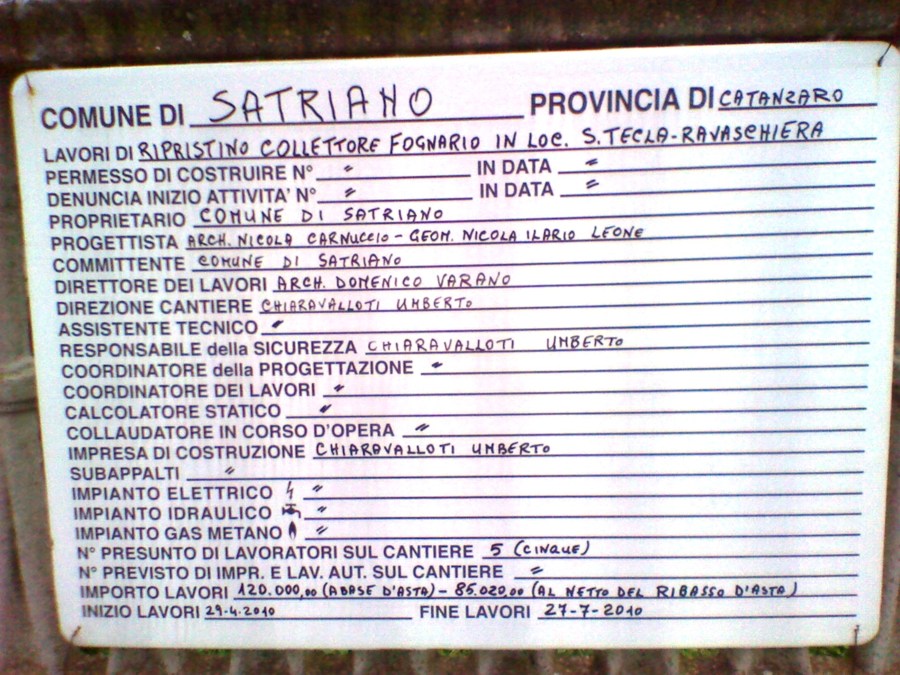 COMUNE DI SATRIANO PROVINCIA DI CATANZARO
LAVORI DI RIPRISTINO COLLETTORE FOGNARIO IN LOC. S.TECLA-RAVASCHIERA
PERMESSO DI COSTRUIRE N° " IN DATA "
DENUNCIA INIZIO ATTIVITA' N° " IN DATA "
PROPRIETARIO COMUNE DI SATRIANO
PROGETTISTA ARCH. NICOLA CARNUCCIO - GEOM. NICOLA ILARIO LEONE
COMMITTENTE COMUNE DI SATRIANO
DIRETTORE DEI LAVORI ARCH. DOMENICO VARANO
DIREZIONE CANTIERE CHIARAVALLOTI UMBERTO
ASSISTENTE TECNICO "
RESPONSABILE della SICUREZZA CHIARAVALLOTI UMBERTO
COORDINATORE della PROGETTAZIONE "
COORDINATORE DEI LAVORI "
CALCOLATORE STATICO "
COLLAUDATORE IN CORSO D'OPERA "
IMPRESA DI COSTRUZIONE CHIARAVALLOTI UMBERTO
SUBAPPALTI "
IMPIANTO ELETTRICO "
IMPIANTO IDRAULICO "
IMPIANTO GAS METANO "
N° PRESUNTO DI LAVORATORI SUL CANTIERE 5 (CINQUE)
N° PREVISTO DI IMPR. E LAV. AUT. SUL CANTIERE "
IMPORTO LAVORI 120.000,00 (A BASE D'ASTA) - 85.020,00 (AL NETTO DEL RIBASSO D'ASTA)
INIZIO LAVORI 29-4-2010 FINE LAVORI 27-7-2010